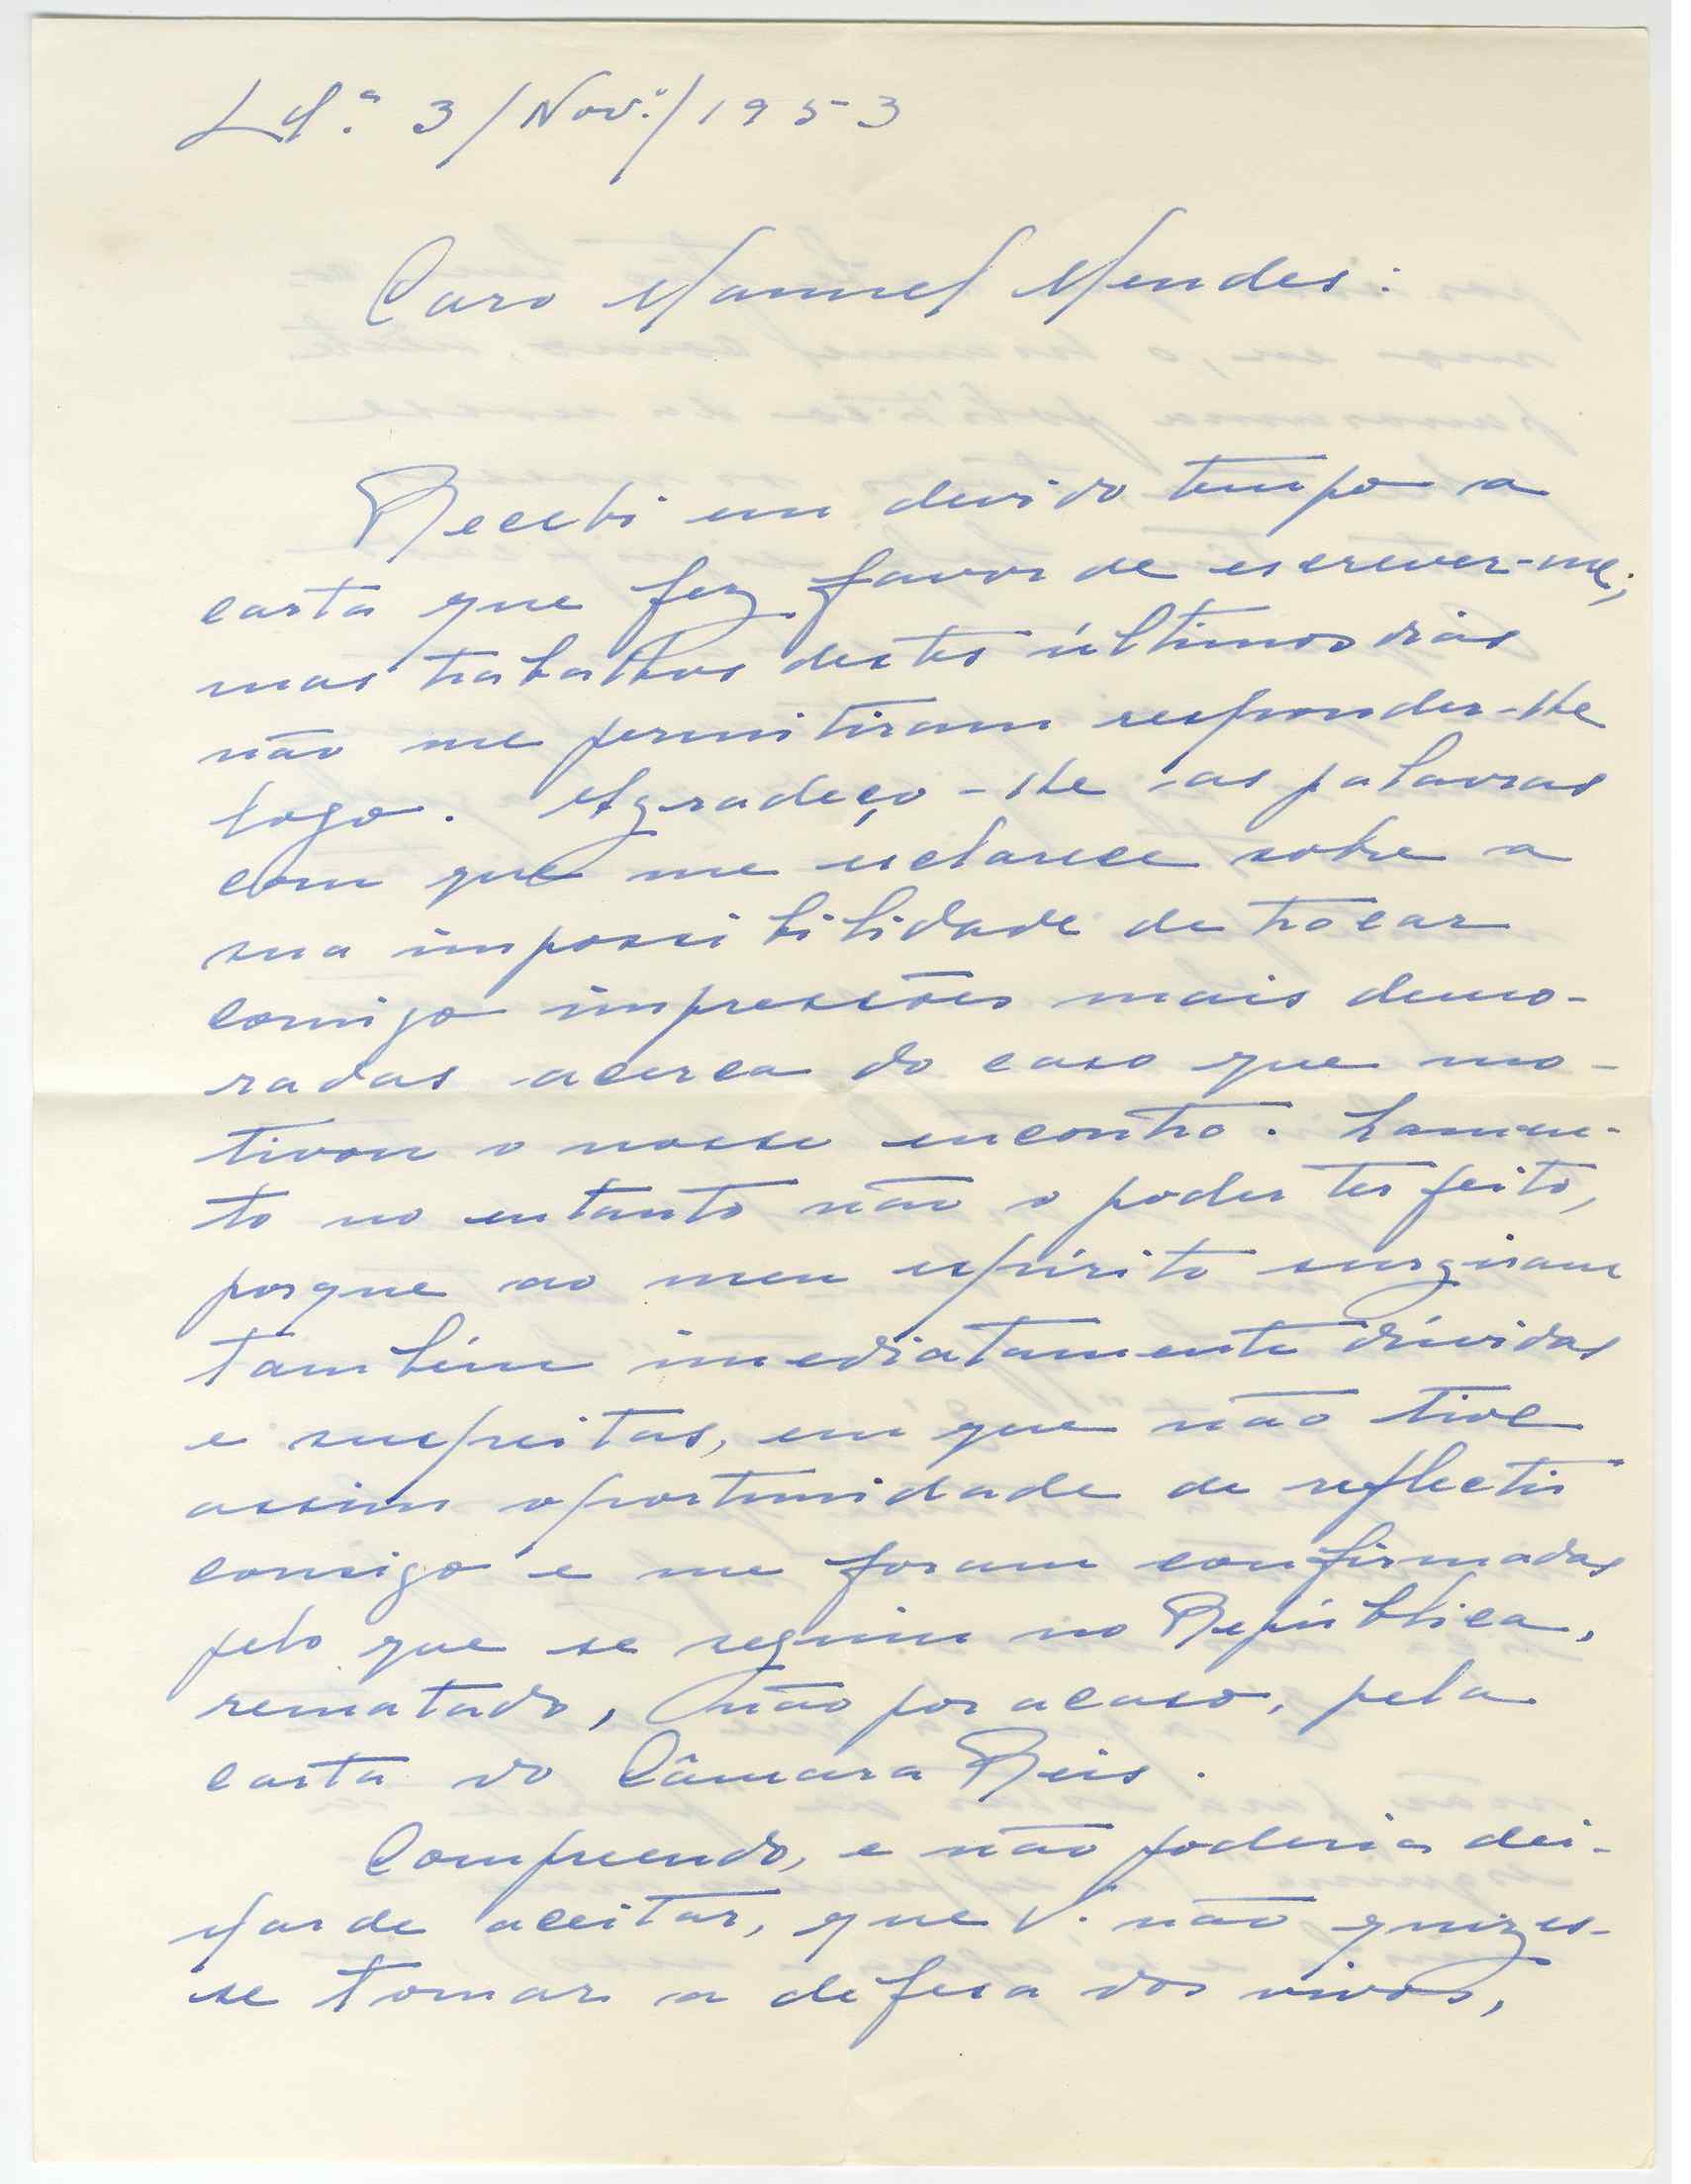 Lx.ª 3/Nov.º/1953
Caro Manuel Mendes:
Recebi em devido tempo a
carta que fez favor de escrever-me;
mas trabalhos destes últimos dias
não me permitiram responder-lhe
logo. Agradeço-lhe as palavras
com que me esclarece sobre a
sua impossibilidade de trocar
comigo impressões mais demo-
radas acerca do caso que mo-
tivou o nosso encontro. Lamen-
to no entanto não o poder ter feito,
porque ao meu espírito surgiram
também imediatamente dúvidas
e suspeitas, em que não tive
assim oportunidade de reflectir
consigo e me foram confirmadas
pelo que se seguiu no República,
rematado, não por acaso, pela
carta do Câmara Reis.
Compreendo, e não poderia dei-
xar de aceitar, que V. não quizes-
se tomar a defesa dos vivos,